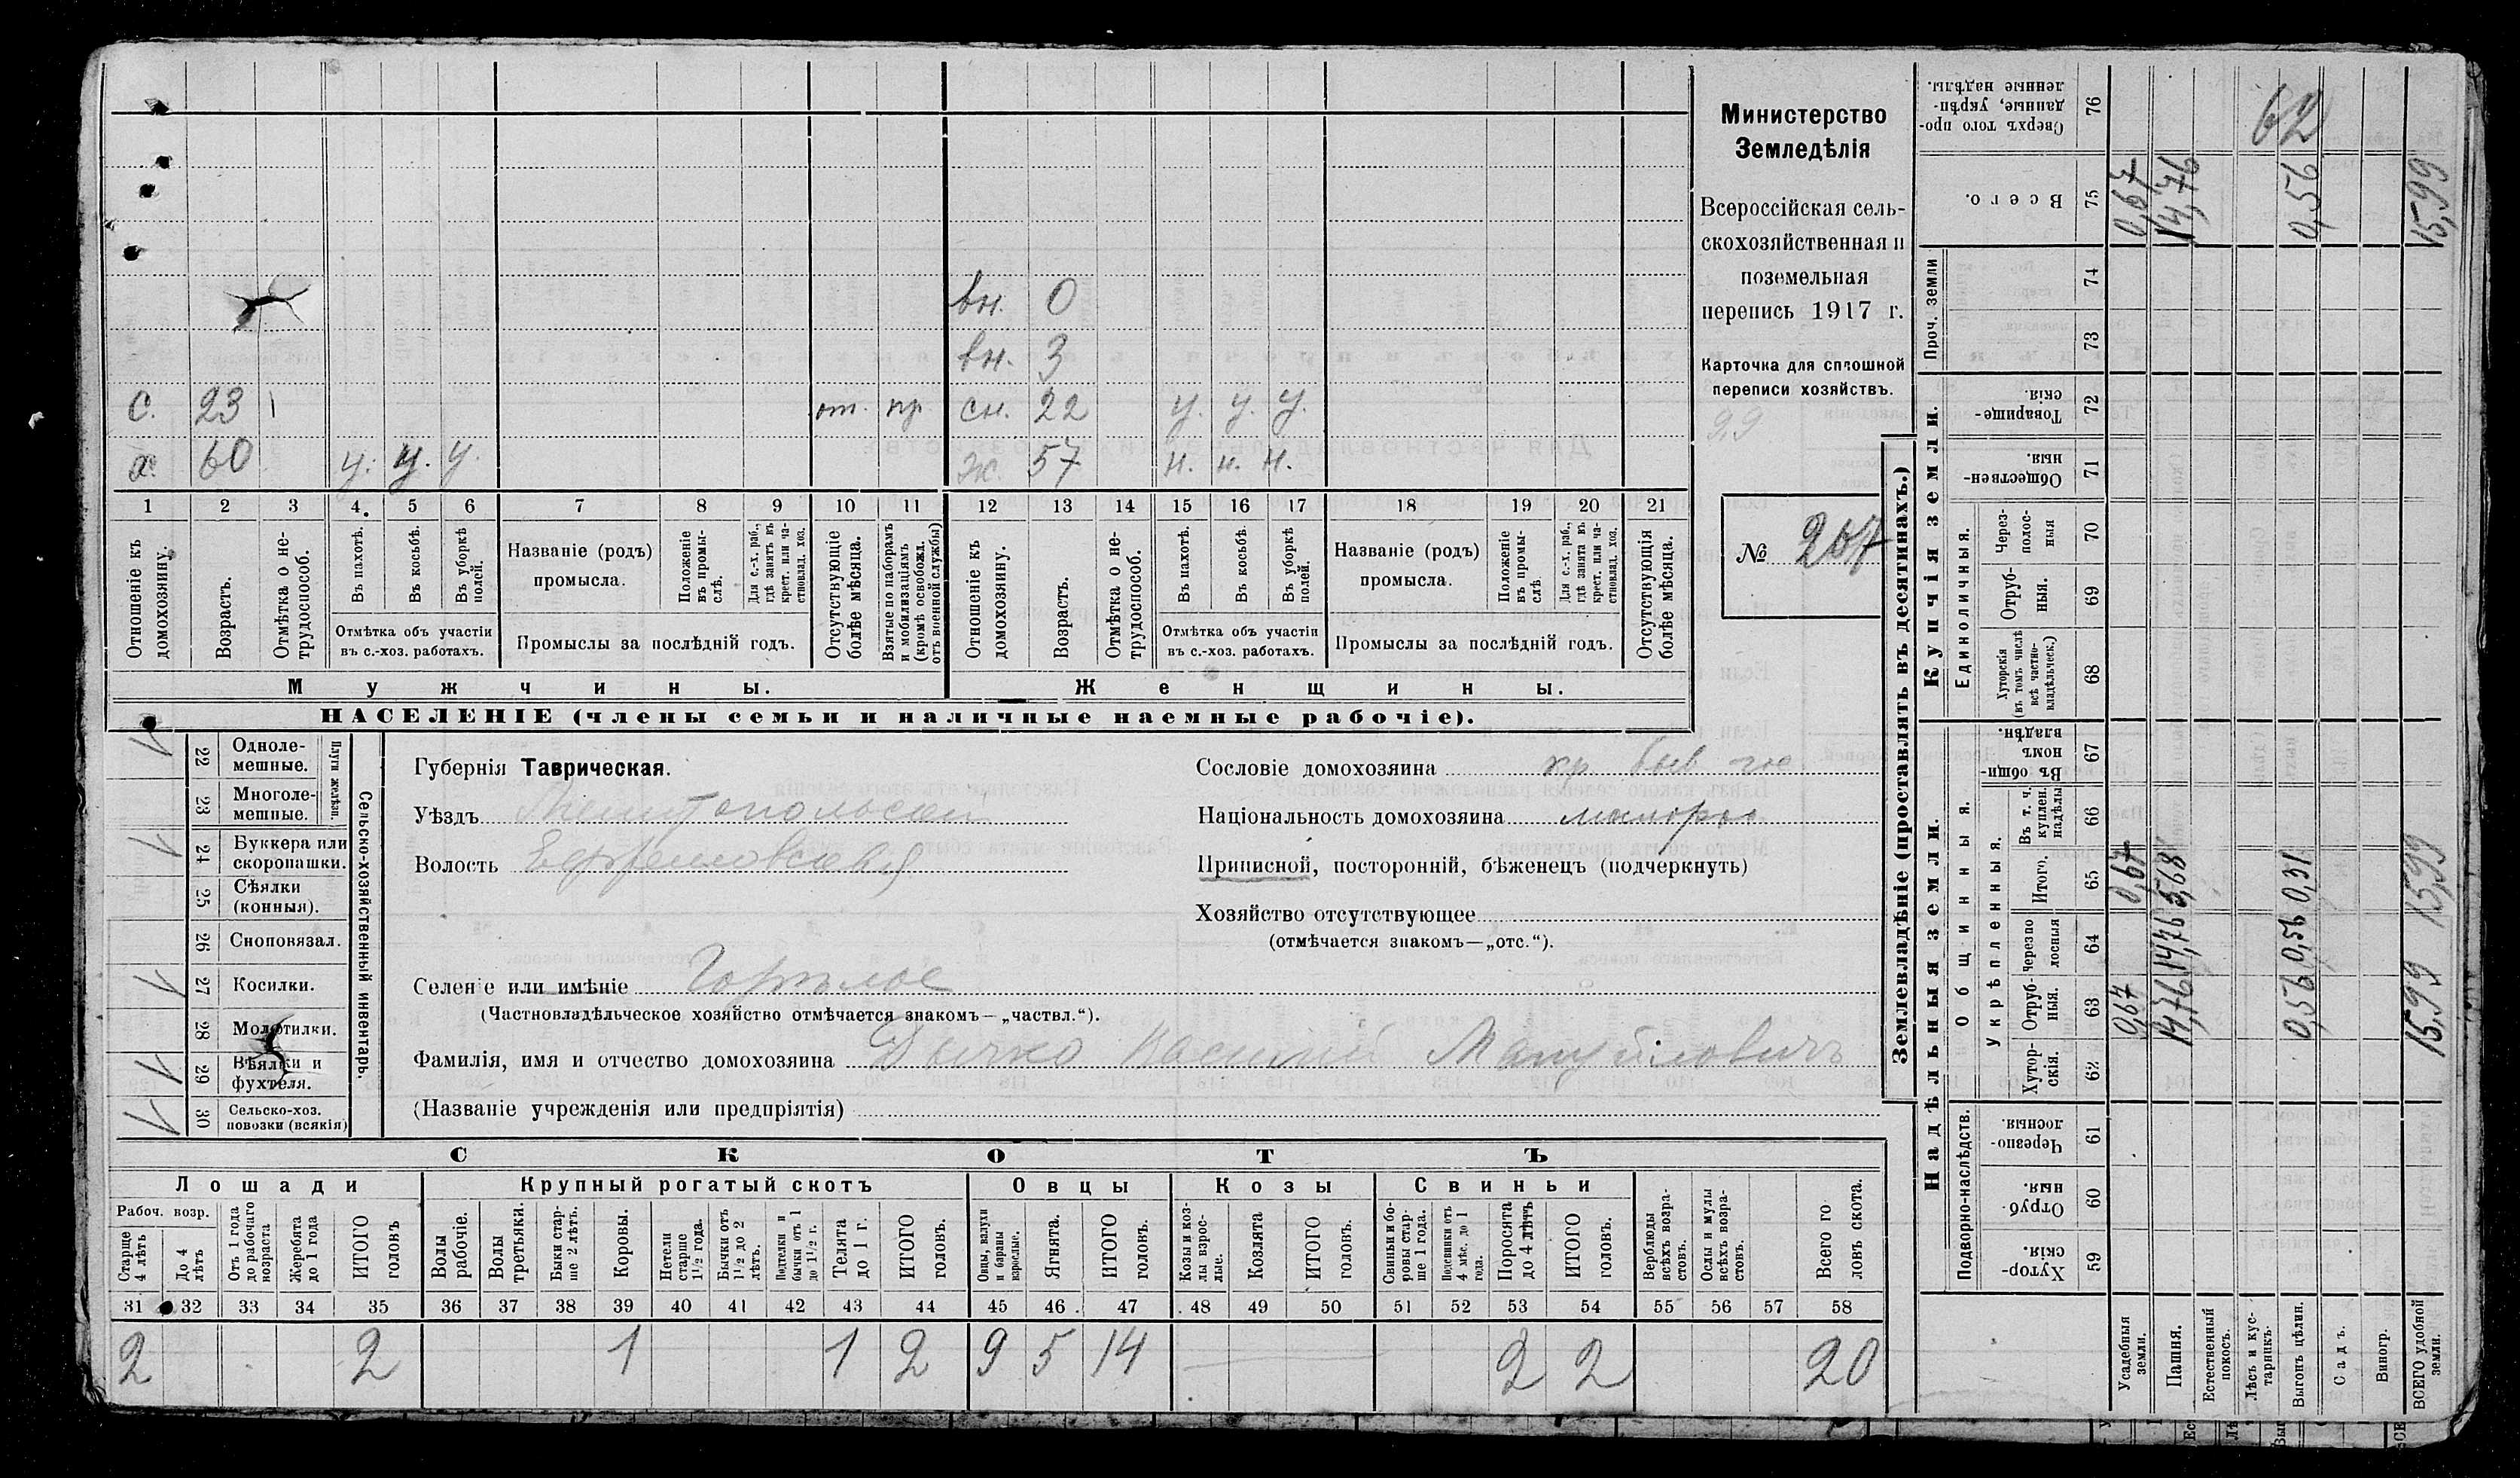 вн. 0
вн. 3
с. 23 от. пр. сн. 22 у. у. у.
х. 60 у. у. у. ж. 57 н. н. н.
1 2 3 4. 5 6 7 8 9 10 11 12 13 14 15 16 17 18 19 20 21
Отношеніе къ домохозяину.
Возрастъ.
Отмѣтка о не-трудоспособ.
Въ пахотѣ.
Въ косьбѣ.
Въ уборкѣ полей.
Отмѣтка объ участіи
въ с.-хоз. работахъ.
Названіе (родъ)
промысла.
Положеніе въ промы-слѣ.
Для с.-х. раб., гдѣ занятъ въ крест. или ча-стновлад. хоз.
Промыслы за послѣдній годъ.
Отсутствующіе болѣе мѣсяца.
Взятые по наборамъ и мобилизаціямъ (кромѣ освобожд. отъ военной службы)
Отношеніе къ домохозяину.
Возрастъ.
Отмѣтка о не-трудоспособ.
Въ пахотѣ.
Въ косьбѣ.
Въ уборкѣ полей.
Отмѣтка объ участіи
въ с.-хоз. работахъ.
Названіе (родъ)
промысла.
Положеніе въ промы-слѣ
Для с.-х. раб., гдѣ занята въ крест. или ча-стновлад. хоз.
Промыслы за послѣдній годъ.
Отсутствующія болѣе мѣсяца.
Мужчины.
Женщины.
НАСЕЛЕНІЕ (члены семьи и наличные наемные рабочіе).
Министерство
Земледѣлія
Всероссійская сель-
скохозяйственная и
поземельная
перепись 1917 г.
Карточка для сплошной
переписи хозяйствъ.
99
№ 207
22 Одноле-мешные.
23 Многоле-мешные.
Плуги желѣзн.
24 Буккера или скоропашки.
25 Сѣялки (конныя).
26 Сноповязал.
27 Косилки.
28 Молотилки.
29 Вѣялки и фухтеля.
30 Сельско-хоз. повозки (всякія)
Сельско-хозяйственный инвентарь.
Губернія Таврическая.
Уѣздъ Мелитопольскій
Волость Ефремовская
Селеніе или имѣніе Горѣлое
(Частновладѣльческое хозяйство отмѣчается знакомъ—„частвл.“).
Фамилія, имя и отчество домохозяина Дычко Василій Мануйловичъ
(Названіе учрежденія или предпріятія)
Сословіе домохозяина кр. быв. го
Національность домохозяина малорос
Приписной, посторонній, бѣженецъ (подчеркнуть)
Хозяйство отсутствующее
(отмѣчается знакомъ—„отс.“).
СКОТЪ
Лошади
Крупный рогатый скотъ
Овцы
Козы
Свиньи
Рабоч. возр.
Старще 4 лѣтъ
До 4 лѣтъ
Отъ 1 года до рабочаго возраста
Жеребята до 1 года
ИТОГО головъ
Волы рабочіе.
Волы третьяки.
Быки стар-ше 2 лѣтъ.
Коровы.
Нетели старше 1½ года.
Бычки отъ 1½ до 2 лѣтъ.
Подтелки и бычки отъ 1 до 1½ г.
Телята до 1 г.
ИТОГО головъ.
Овцы, валухи и бараны взрослые.
Ягнята.
ИТОГО головъ.
Козы и коз-лы взрос-лые.
Козлята
ИТОГО головъ.
Свиньи и бо-ровы стар-ше 1 года.
Подсвинки отъ 4 мѣс. до 1 года.
Поросята до 4 лѣтъ
ИТОГО головъ.
Верблюды всѣхъ возра-стовъ.
Ослы и мулы всѣхъ возра-стовъ.
Всего го ловъ скота.
31 32 33 34 35 36 37 38 39 40 41 42 43 44 45 46 47 48 49 50 51 52 53 54 55 56 57 58
2 2 1 1 2 9 5 14 2 2 20
Землевладѣніе (проставлять въ десятинахъ.)
Надѣльныя земли.
Купчія земли.
Проч. земли
Подворно-наслѣдств.
Общинныя.
Укрѣпленныя.
Единоличныя.
Хутор-скія. 59
Отруб-ныя. 60
Черезпо-лосныя 61
Хутор-скія. 62
Отруб-ныя. 63
Черезпо лосныя 64
Итого. 65
Въ т. ч. куплен. надѣлы 66
Въ общин-номъ владѣн. 67
Хуторскія (въ томъ числѣ всѣ частно-владѣльческ.) 68
Отруб-ныя. 69
Через-полос-ныя 70
Обществен-ныя. 71
Товарище-скія. 72
73
74
Всего. 75
Сверхъ того про-данные, укрѣп-ленные надѣлы. 76
Усадебныя земли. 0,67 0,67 0,67
Пашня. 14,76 14,76 5,68 14,76
Естественный покосъ.
Лѣсъ и кус-тарникъ.
Выгонъ цѣлин. 0,56 0,56 0,31 0,56
Садъ.
Виногр.
ВСЕГО удобной земли. 15,99 15,99 15,99
62